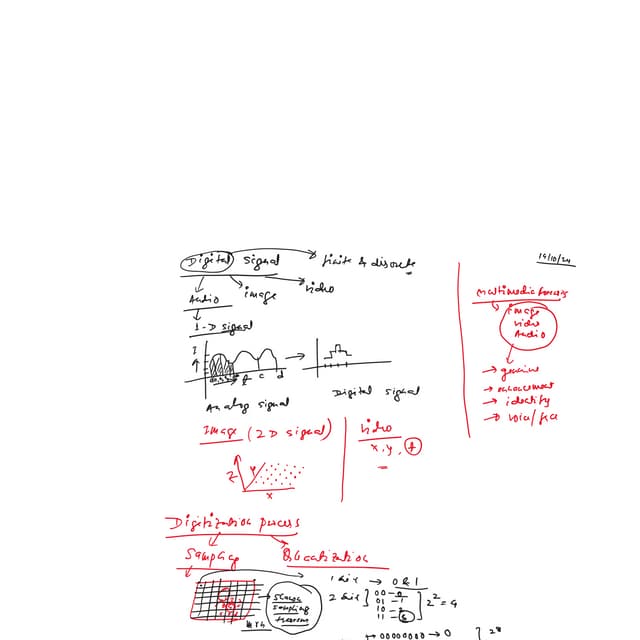 Digital signal → finite & discrete
19/10/24
Audio image video
1-D signal
I
c d
Analog signal
Digital signal
Multimedia forensics
image
video
Audio
→ genuine
→ enhancement
→ identify
→ voice/face
Image (2D signal)
video
x, y, t
Z y
x
Digitization process
Sampling
Quantization
1 bit → 0 & 1
2 bit
00 - 0
01 - 1
10 - 2
11 - 3
2² = 4
sampling
theorem
00000000 → 0
2⁸